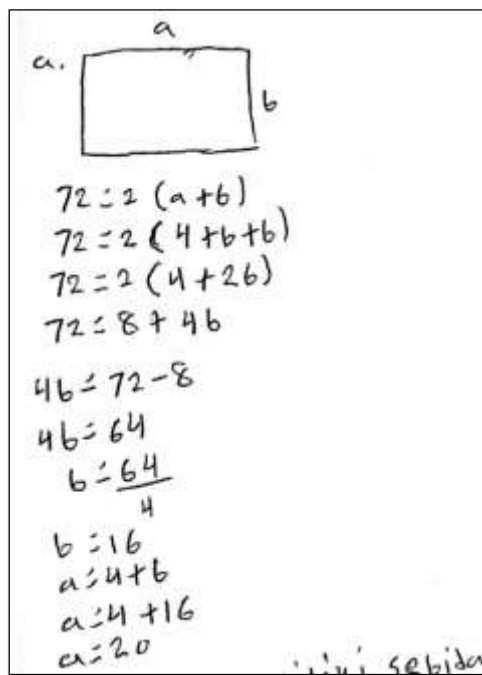 a
a.
b
72 = 2 (a+b)
72 = 2 (4+b+b)
72 = 2 (4+2b)
72 = 8 + 4b
4b = 72-8
4b = 64
b = 64
4
b = 16
a = 4+b
a = 4+16
a = 20
sebida